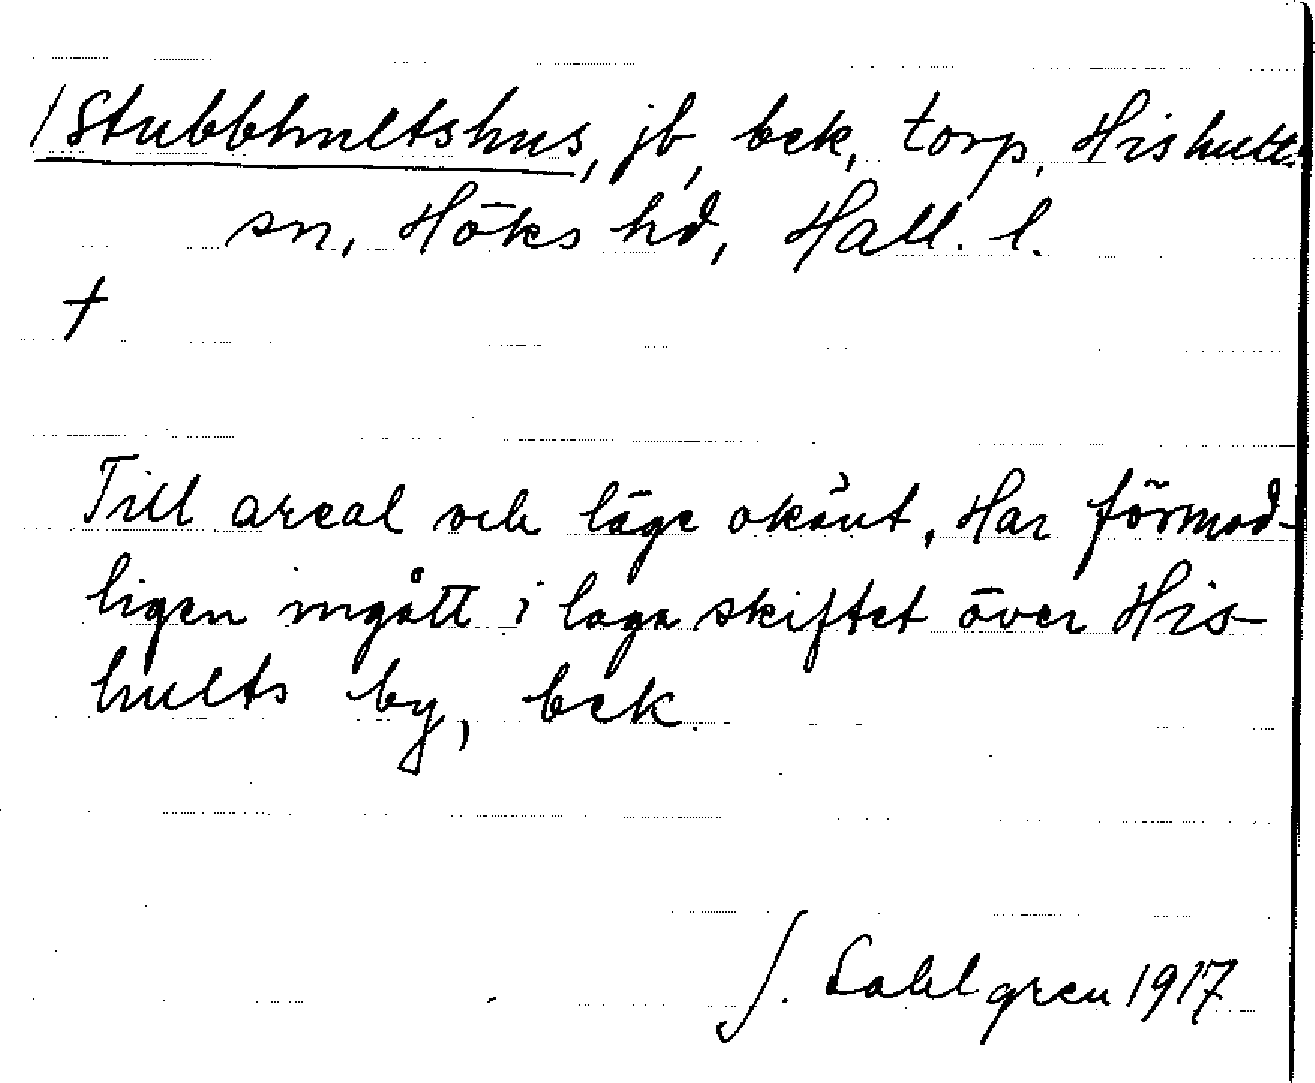 /Stubbhultshus, jb, bek, torp, Hishults
sn, Höks hd, Hall. l.
†
Till areal och läge okänt, Har förmod-
ligen ingått i laga skiftet över His-
hults by, bek.
J. Sahlgren 1917